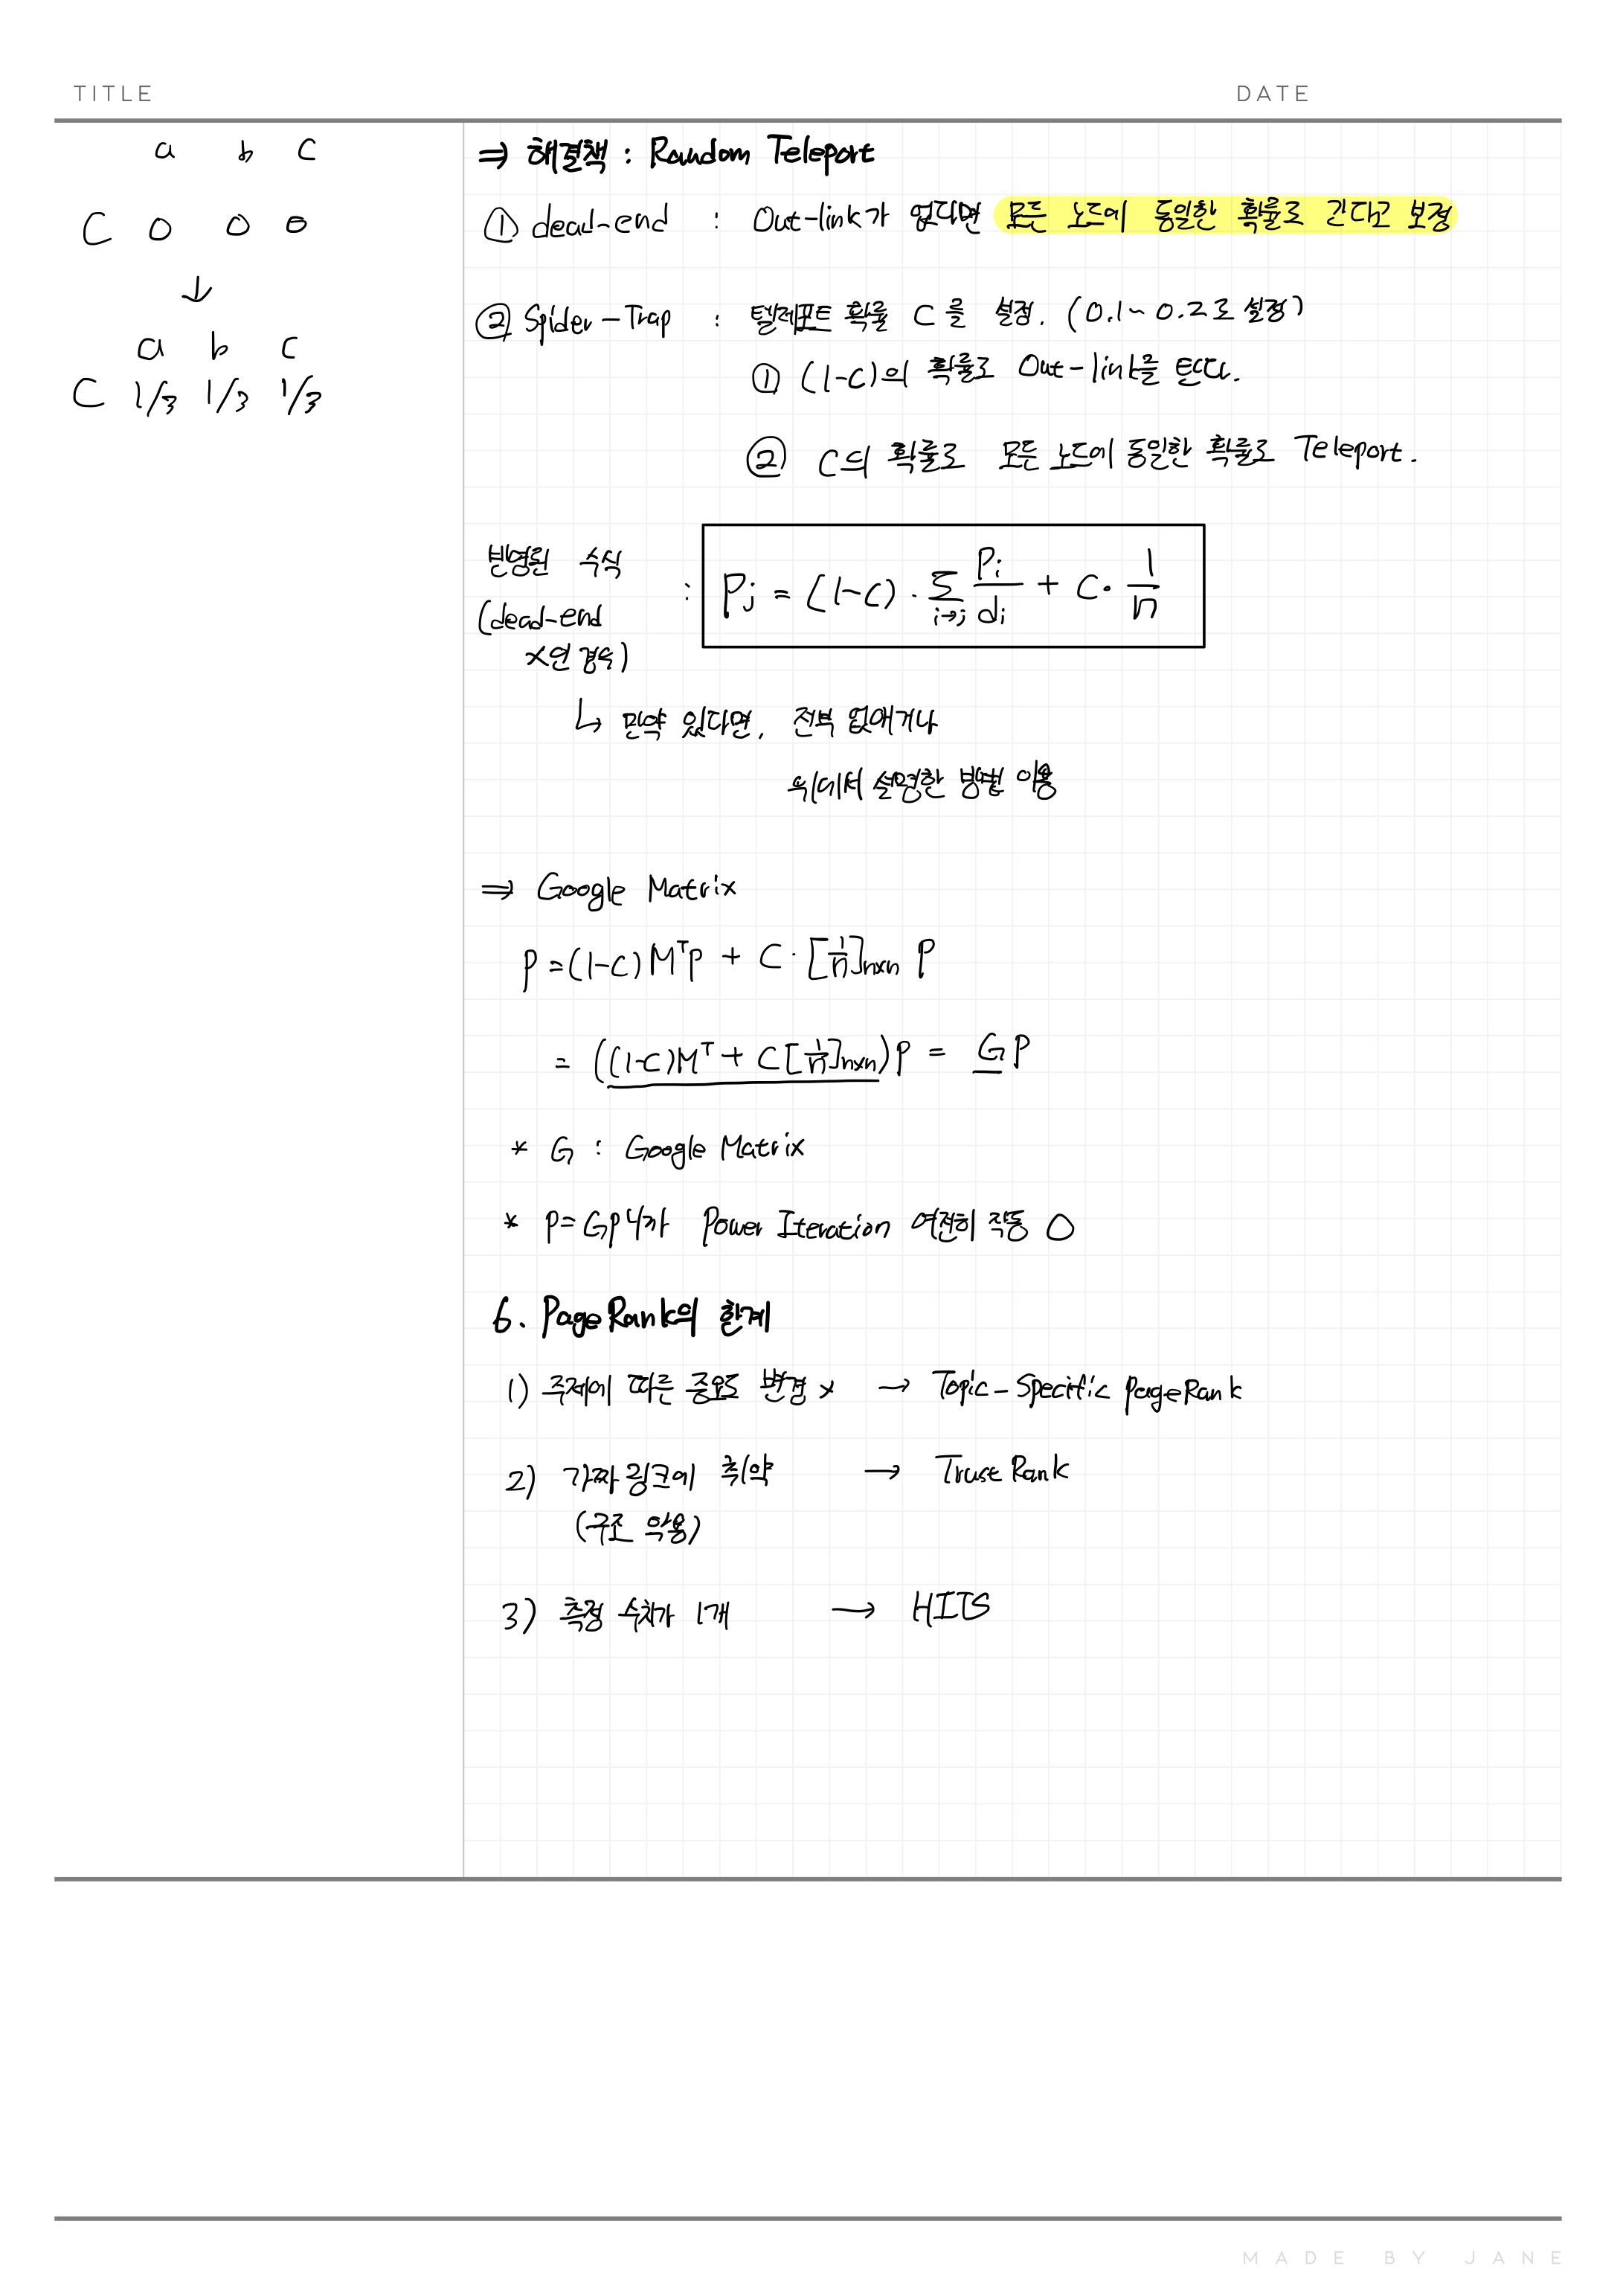 TITLE
DATE
a b c
C 0 0 0
↓
a b c
C 1/3 1/3 1/3
⇒ 해결책 : Random Teleport
① dead-end : Out-link가 없다면 모든 노드에 동일한 확률로 간다고 보정
② Spider-Trap : 텔레포트 확률 C를 설정. (0.1~0.2로 설정)
① (1-c)의 확률로 Out-link를 탄다.
② C의 확률로 모든 노드에 동일한 확률로 Teleport.
반영된 수식
(dead-end
x인 경우)
: Pj = (1-c) · Σ i→j Pi/di + C · 1/n
↳ 만약 있다면, 전부 없애거나
위에서 설명한 방법 이용
⇒ Google Matrix
P = (1-c) MᵀP + C · [1/n]nxn P
= ((1-c)Mᵀ + C[1/n]nxn)P = GP
* G : Google Matrix
* P=GP니까 Power Iteration 여전히 작동 O
6. PageRank의 한계
1) 주제에 따른 중요도 변경 x → Topic-Specific PageRank
2) 가짜 링크에 취약 → TrustRank
(구조 악용)
3) 측정 수치가 1개 → HITS
MADE BY JANE